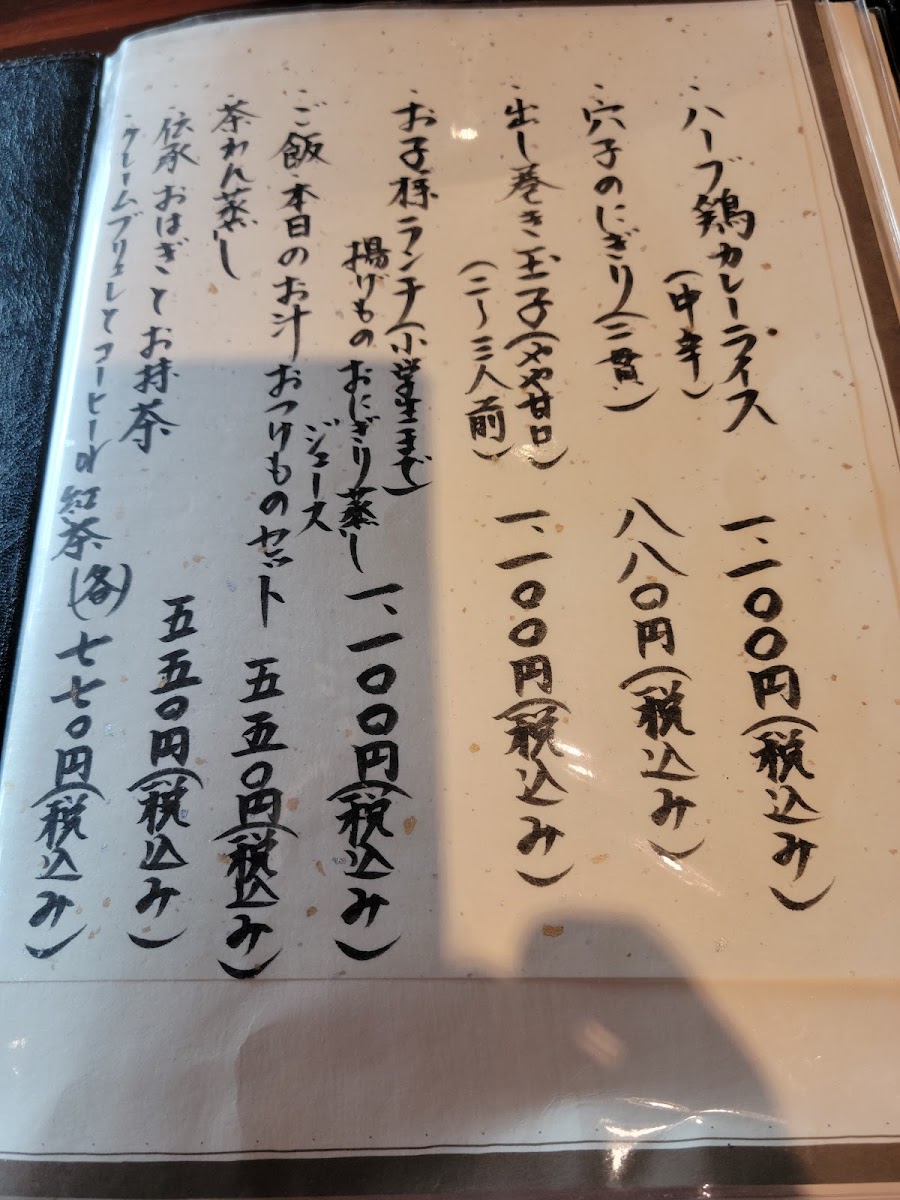 ・ハーブ鶏カレーライス 一、一〇〇円(税込み)
(中辛)
・穴子のにぎり(三貫) 八八〇円(税込み)
・出し巻き玉子(やや甘口) 一、一〇〇円(税込み)
(二〜三人前)
・お子様ランチ(小学生まで)
揚げもの おにぎり 蒸し 一、一〇〇円(税込み)
ジュース
・ご飯・本日のお汁 おつけものセット 五五〇円(税込み)
・茶わん蒸し
・伝承おはぎとお抹茶 五五〇円(税込み)
・クレームブリュレとコーヒーor紅茶(各)七七〇円(税込み)